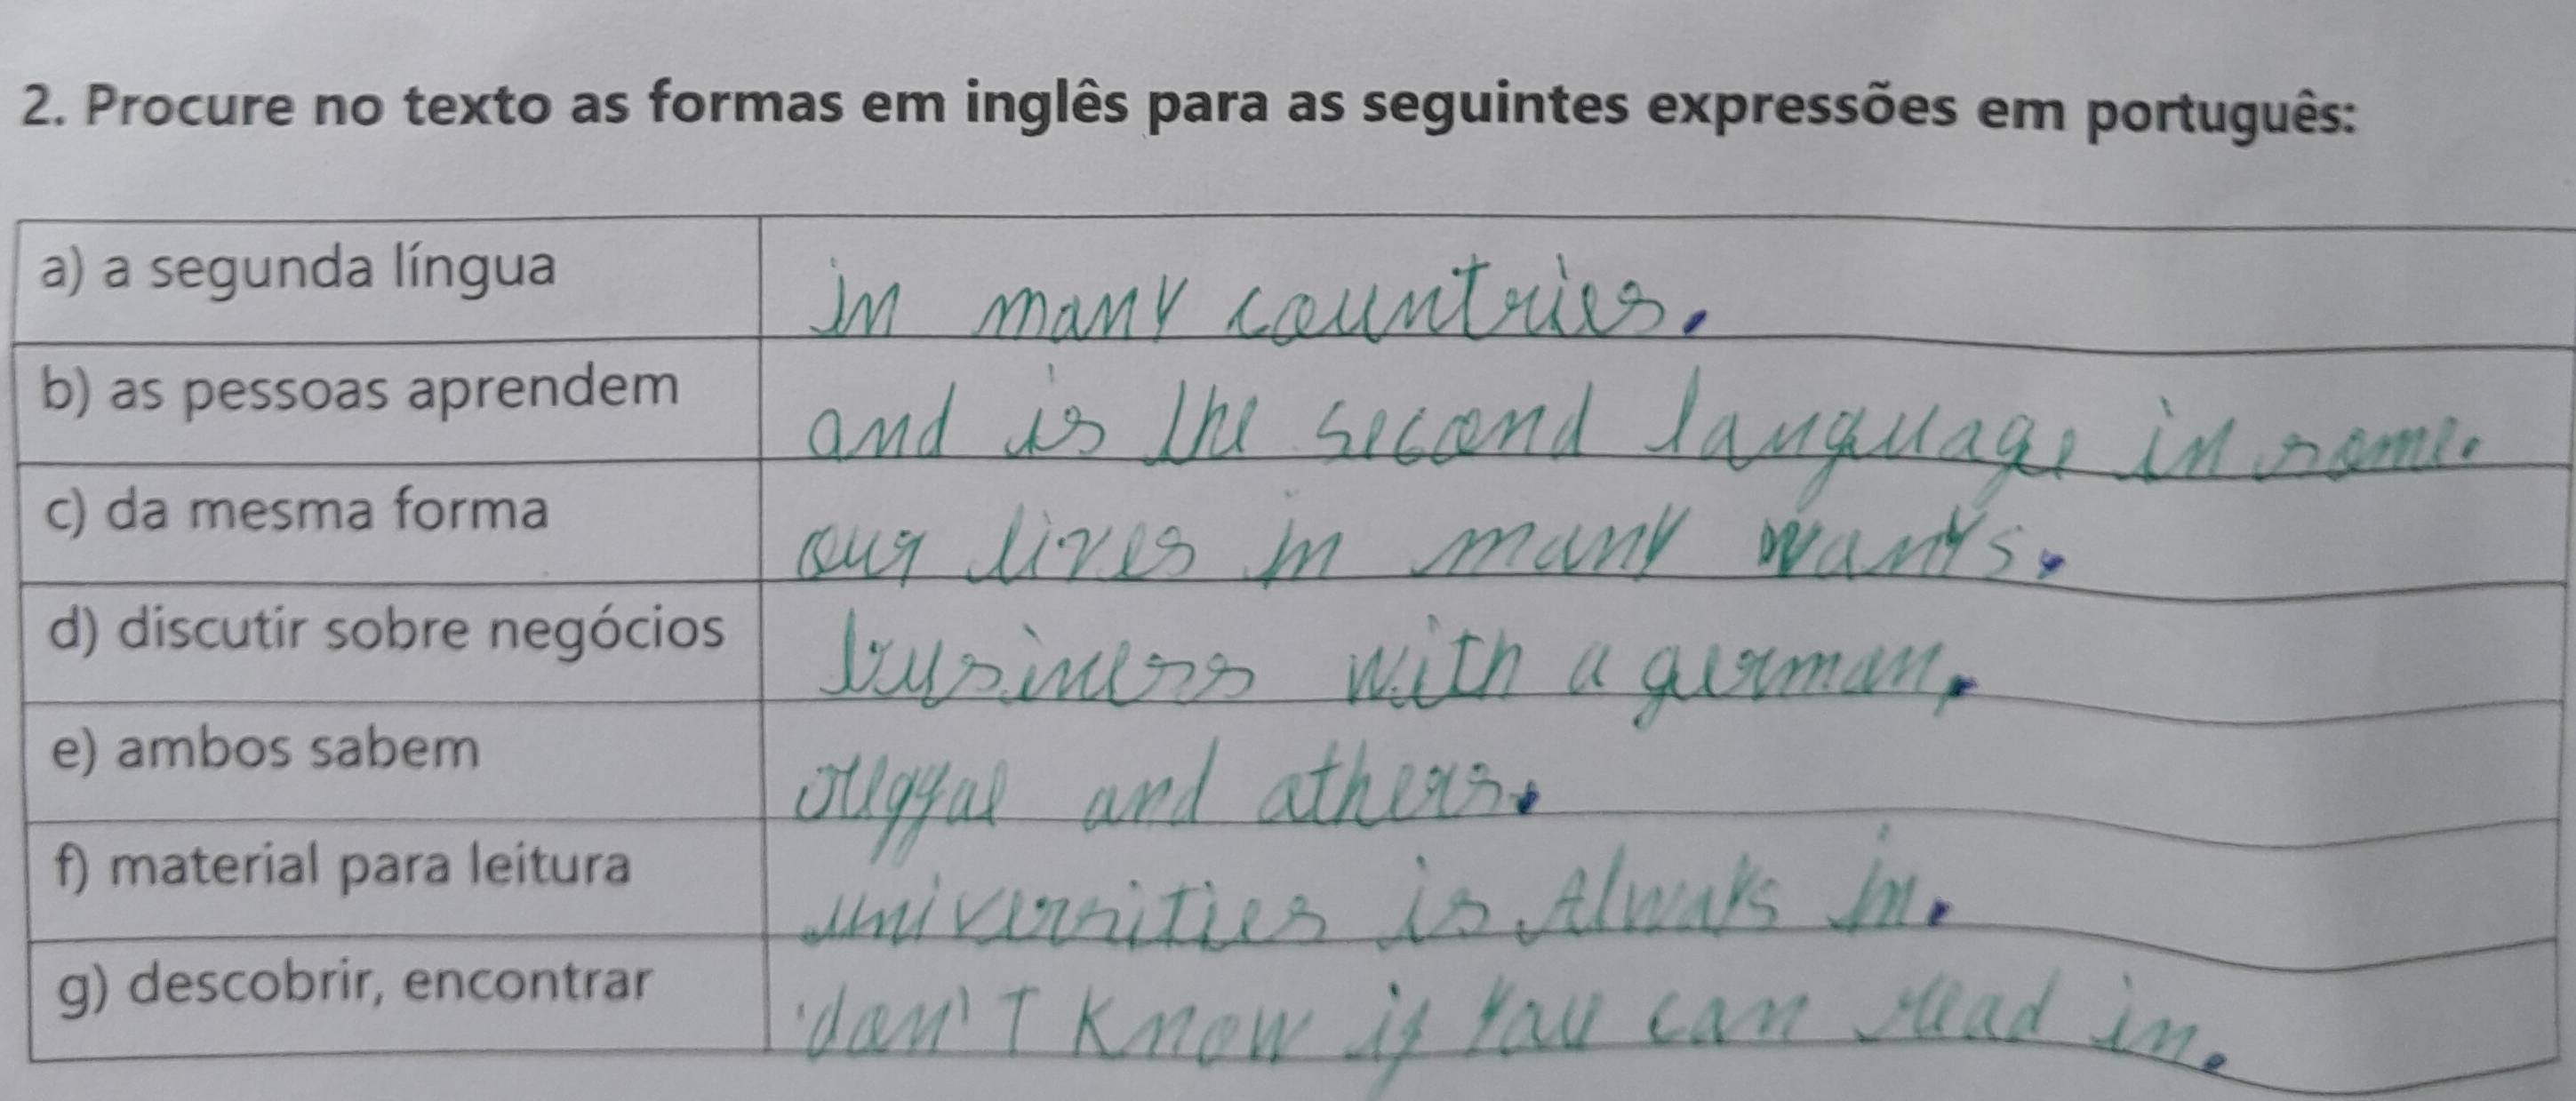 2. Procure no texto as formas em inglês para as seguintes expressões em português:
a) a segunda língua
in many countries.
b) as pessoas aprendem
and is the second language in some.
c) da mesma forma
our lives in many wants.
d) discutir sobre negócios
business with a german.
e) ambos sabem
and athers.
f) material para leitura
universities is Always in.
g) descobrir, encontrar
don't know if you can read in.